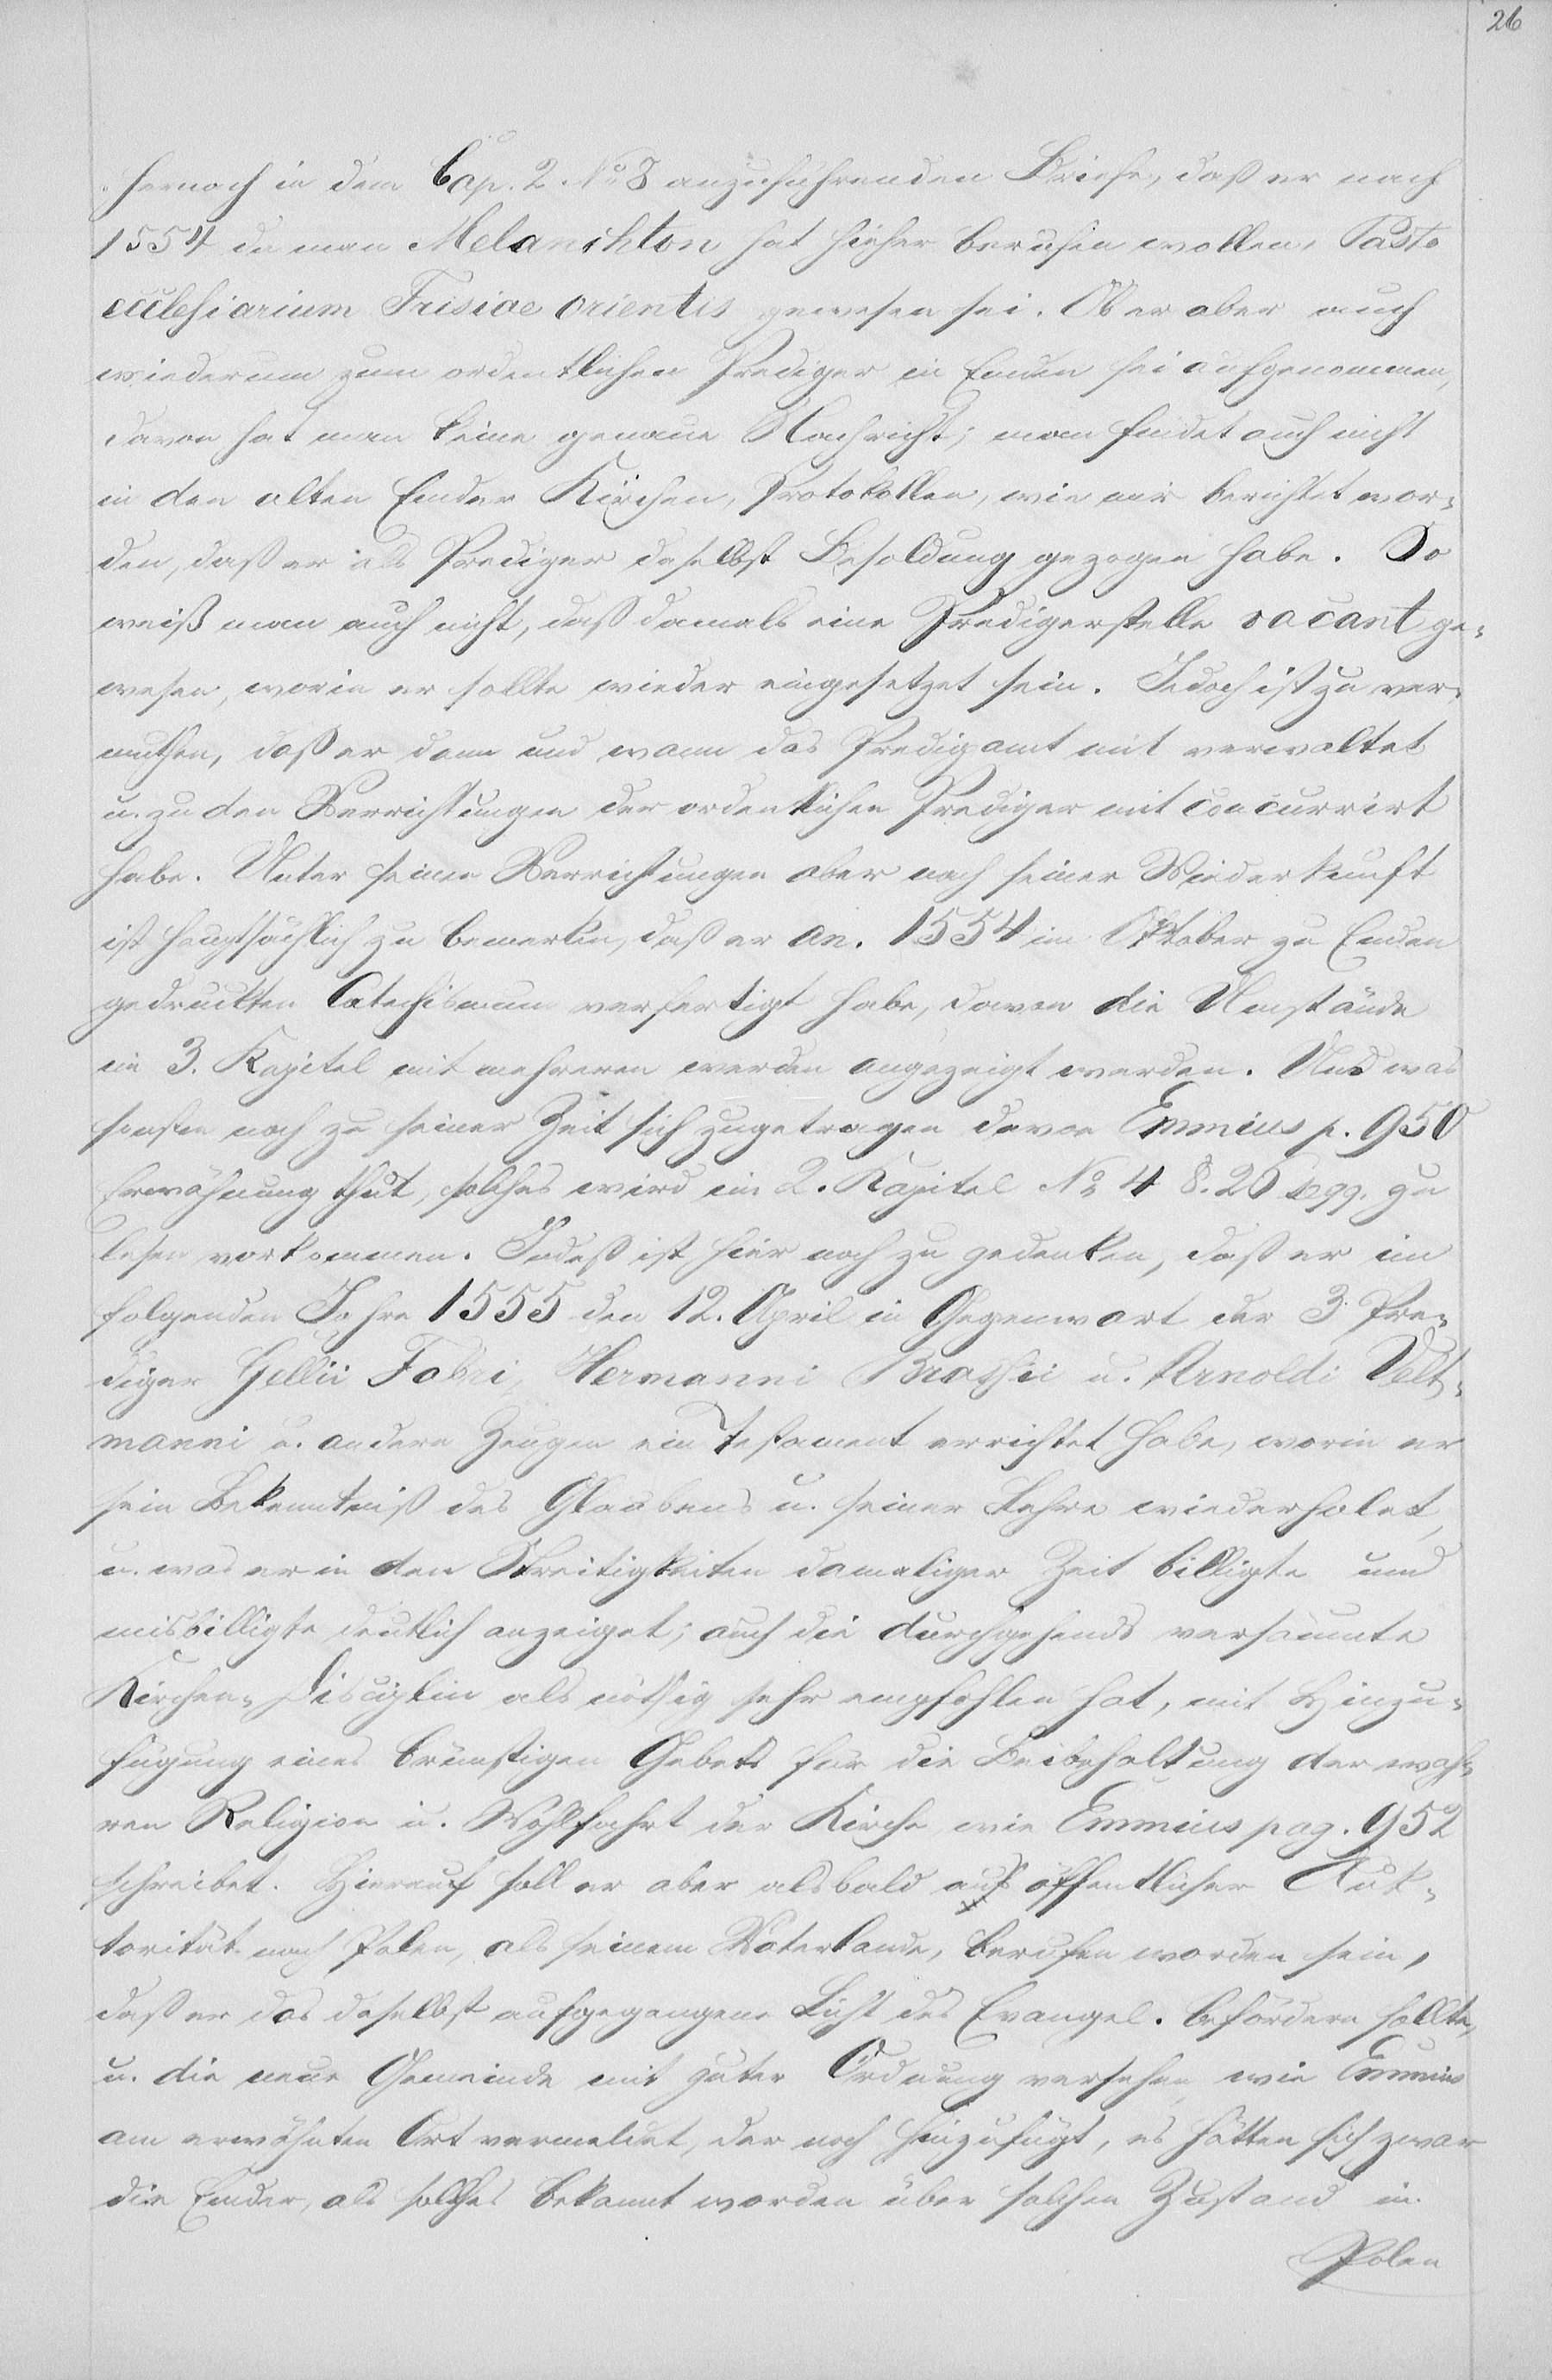 26
hernach in dem Cap. 2 No 8 anzuführenden Briefe, daß er nach
1554 da man Melanchton hat hieher berufen wollen, Pasto
ecclesiarium Frisiae orientis gewesen sei. Ob er aber auch
wiederum zum ordentlichen Prediger in Emden sei aufgenommen,
davon hat man keine genaue Nachricht; man findet auch nicht
in den alten Emder Kirchen, Protokollen, wie mir berichtet wor-
den, daß er als Prediger daselbst Besoldung gezogen habe. So
weiß man auch nicht, daß damals eine Predigerstelle vacant ge-
wesen, worin er sollte wieder eingesetzet sein. Jedoch ist zu ver-
muthen, daß er dann und wann das Predigamt mit verwaltet
u. zu den Verrichtungen der ordentlichen Prediger mit concurrirt
habe. Unter seinen Verrichtungen aber nach seiner Wiederkunft
ist hauptsächlich zu bemerken, daß er an. 1554 im Oktober zu Emden
gedruckten Catechismum verfertigt habe, davon die Umstände
im 3. Kapitel mit mehreren werden angezeigt werden. Und was
sonsten noch zu seiner Zeit sich zugetragen davon Emmius p. 950
Erwähnung thut, solches wird im 2. Kapitel No 4 §. 26 sqq. zu
lesen vorkommen. Indeß ist hier noch zu gedenken, daß er im
folgenden Jahre 1555 den 12. April in Gegenwart der 3 Pre-
diger Gellii Fabri, Hermanni Brassii u. Arnoldi Velt-
manni u. andern Zeugen ein Testament errichtet habe, worin er
sein Bekenntniß des Glaubens u. seiner Lehre wiederholet,
u. was er in den Streitigkeiten damaliger Zeit billigte und
misbilligte deutlich anzeiget; auch die durchgehends versäumte
Kirchen-Disciplin als nöthig sehr empfohlen hat, mit Hinzu-
fügung eines brünstigen Gebets für die Beibehaltung der wah-
ren Religion u. Wohlfahrt der Kirche, wie Emmius pag. 952
schreibet. Hierauf soll er aber alsbald aus öffentlicher Auk-
torität nach Polen, als seinem Vaterlande, berufen worden sein,
daß er das daselbst aufgegangene Licht des Evangel. befördern sollte,
u. die neue Gemeinde mit guter Ordnung versehen, wie Emmius
am erwähnten Ort vermeldet, der noch hinzufügt, es hätten sich zwar
die Emder, als solches bekannt worden über solchen Zustand in
Polen